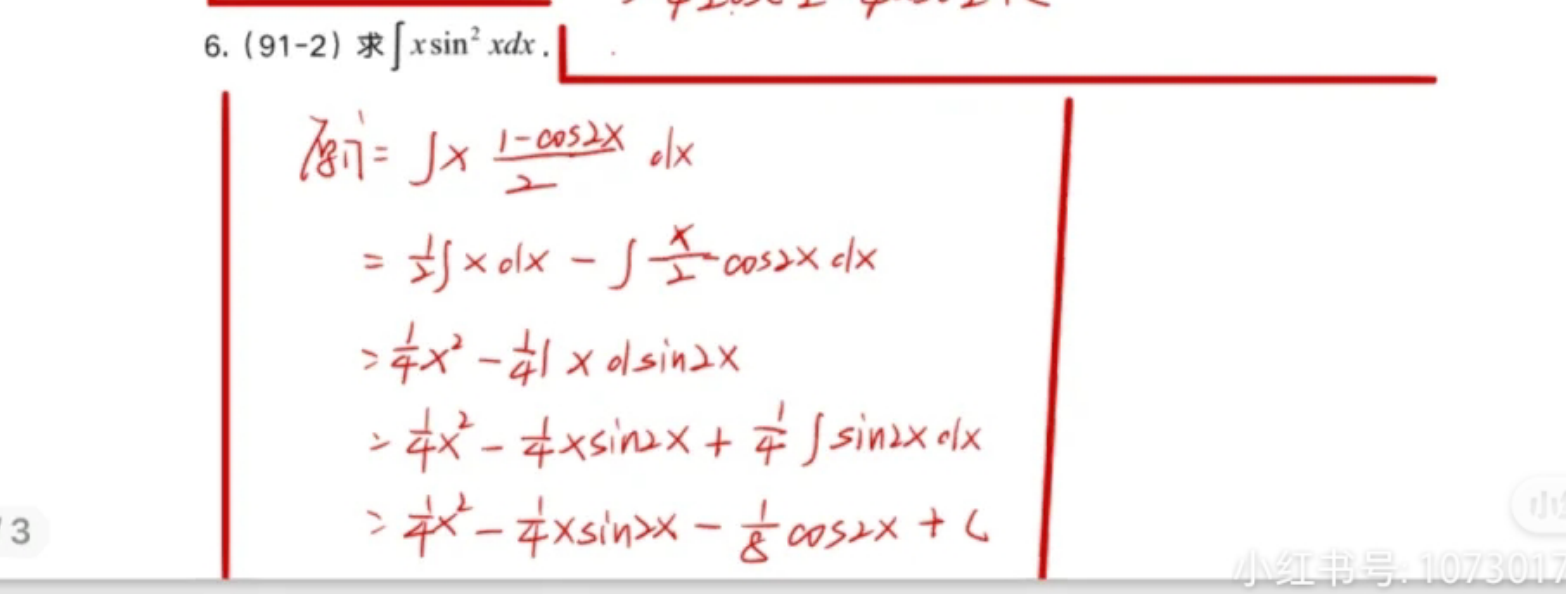 6. (91-2) 求∫x sin² xdx.
原式= ∫x (1-cos2x)/2 dx
= 1/2∫x dx - ∫ x/2 cos2x dx
= 1/4x² - 1/4∫ x dsin2x
= 1/4x² - 1/4xsin2x + 1/4 ∫sin2x dx
= 1/4x² - 1/4xsin2x - 1/8 cos2x + C
/3
小红书号: 1073017